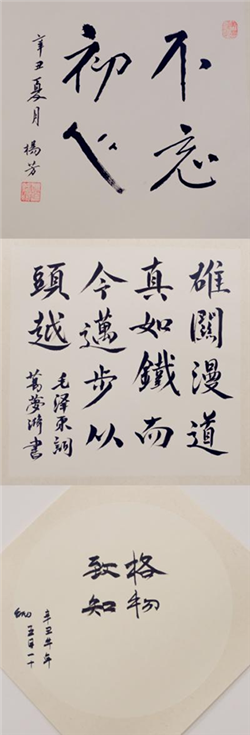 不忘
初心
辛丑夏月 楊芳
雄關漫道
真如鐵而
今邁步从
頭越
毛泽東詞
書
格物
致知
辛丑年